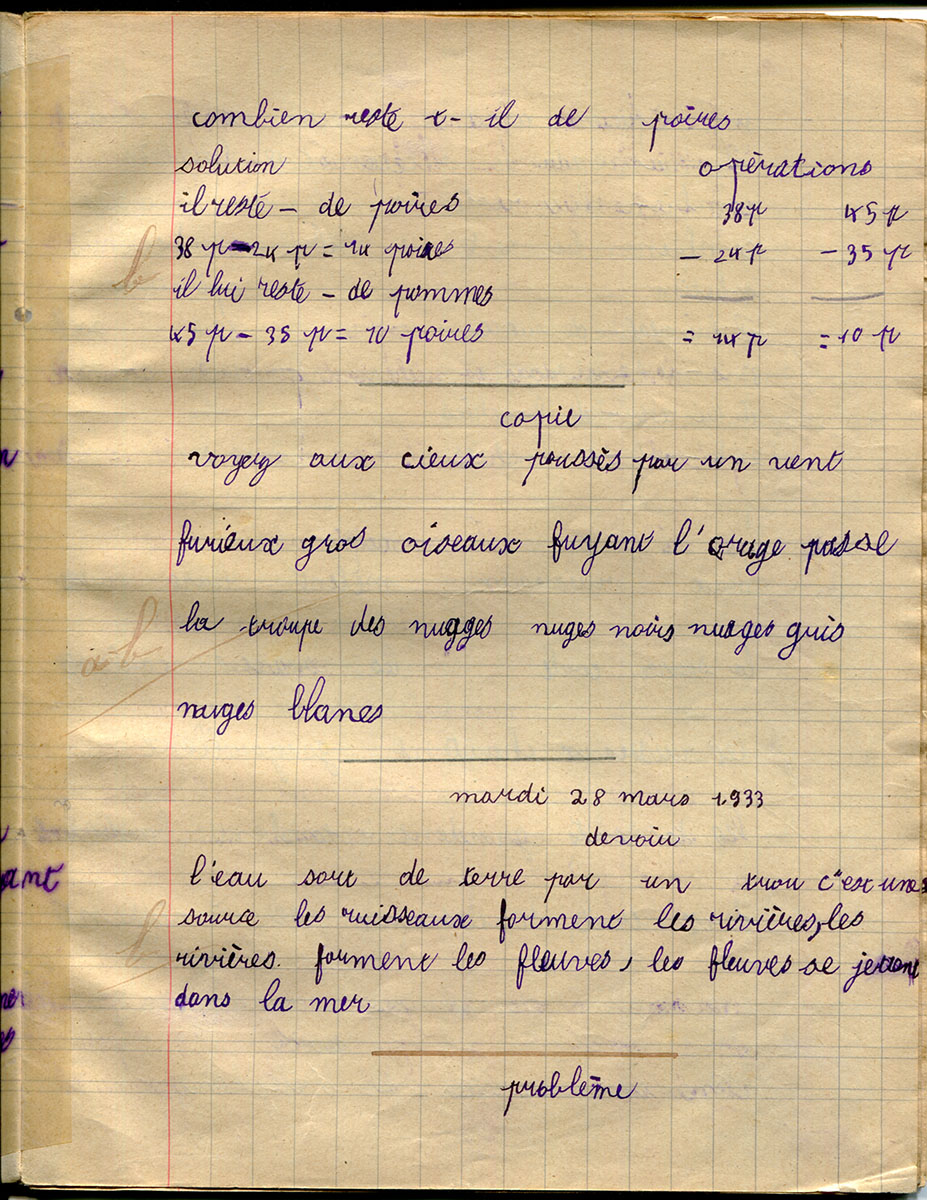 combien reste t-il de poires
solution opérations
il reste - de poires 38 p 45 p
38 p - 24 p = 14 poires - 24 p - 35 p
il lui reste - de pommes
45 p - 35 p = 10 poires = 14 p = 10 p
copie
voyez aux cieux poussés par un vent
furieux gros oiseaux fuyant l'orage passe
la troupe des nugges nuges noirs nuages gris
nuages blancs
mardi 28 mars 1933
devoir
l'eau sort de terre par un trou c'est une
source les ruisseaux forment les rivières, les
rivières. forment les fleuves, les fleuves se jettent
dans la mer
problème
b
ab
b
ant